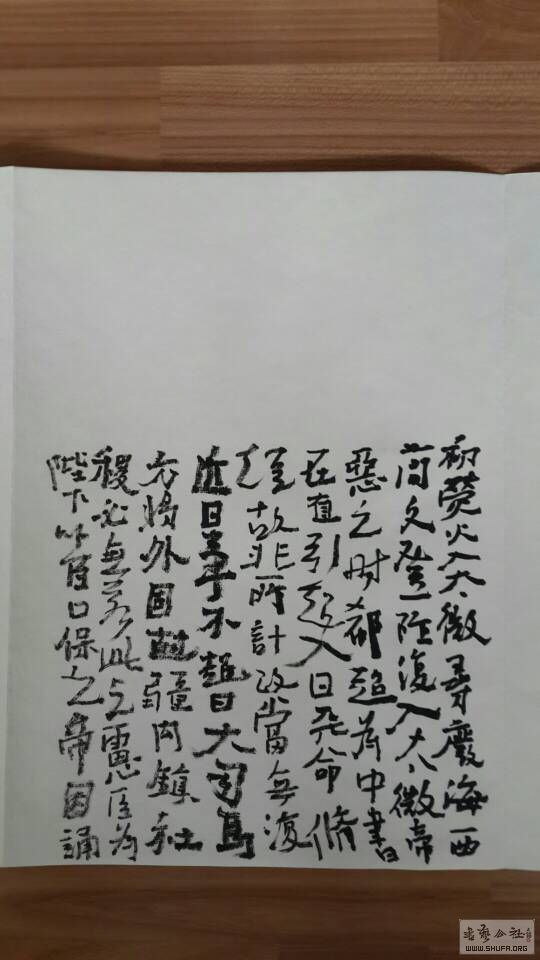 初熒火入太微尋廢海西
簡文登阼復入太微帝
惡之时郗超為中書
在直引超入曰天命脩
短故非所計政當無復
近日事不超曰大司馬
方將外固封疆內鎮社
稷必無若此之慮臣為
陛下以百口保之帝因誦
书艺公社
WWW.SHUFA.ORG